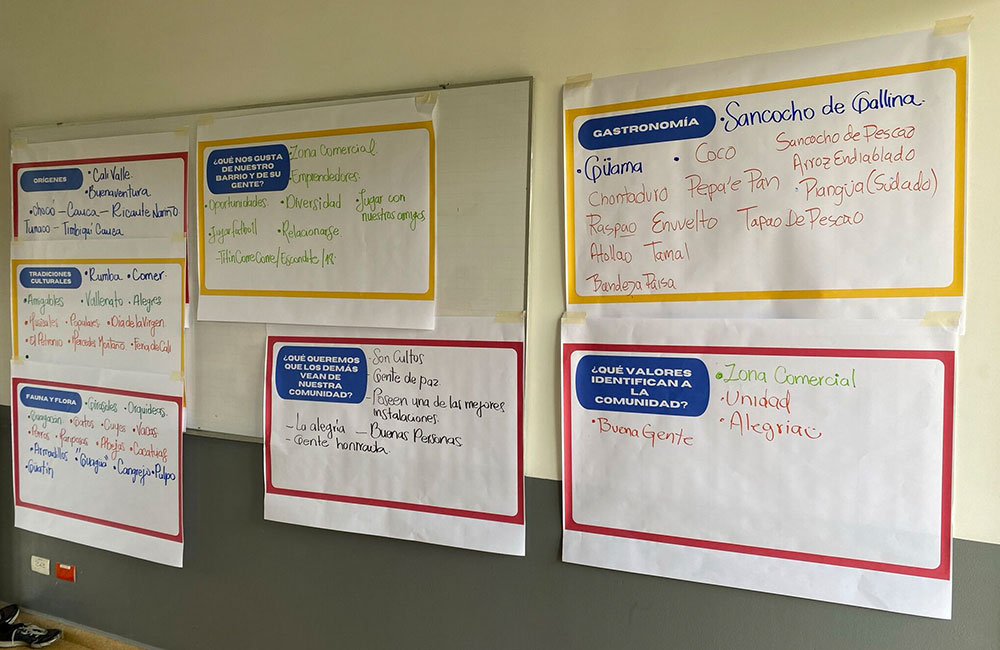 ORÍGENES
• Cali Valle
• Buenaventura
• Chocó — Cauca — Ricaute Nariño
Tumaco — Timbiqui Cauca
TRADICIONES CULTURALES
• Rumba • Comer
• Amigables • Vallenato • Alegres
• Populares • Día de la Virgen
• El Petronio • Mercedes Montaño • Feria de Cali
FAUNA Y FLORA
• Girasoles • Orquideas
• Guayacan • Gatos • Cuyes • Vacas
• Perros • Abejas • Cacatuas
• Armadillos • "Guagua" • Cangrejo • Pulpo
• Guatin
¿QUÉ NOS GUSTA
DE NUESTRO
BARRIO Y DE SU
GENTE?
• Zona Comercial
• Emprendedores
• Oportunidades • Diversidad • Jugar con
nuestros amigos
• Jugar futboll • Relacionarse
— TinTinCorreCorre/Escondite/
¿QUÉ QUEREMOS
QUE LOS DEMÁS
VEAN DE
NUESTRA
COMUNIDAD?
- Son Cultos
- Gente de paz
- Poseen una de las mejores
instalaciones
- La alegria — Buenas Personas
- Gente honrrada
GASTRONOMÍA
• Sancocho de Gallina
• Güama • Coco Sancocho de Pescao
Chontaduro Pepa'e Pan Arroz Endiablado
• Piangüa (Sudado)
Raspao Envuelto Tapao De Pescao
Atollao Tamal
Bandeja Paisa
¿QUÉ VALORES
IDENTIFICAN A
LA
COMUNIDAD?
• Zona Comercial
• Unidad
• Buena Gente • Alegria